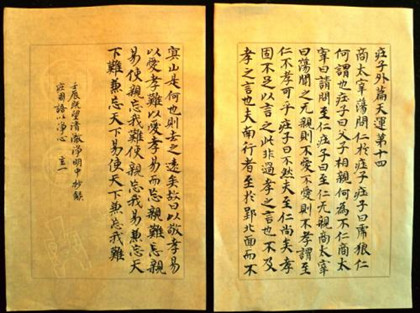 庄子外篇天運第十四
商太宰蕩問仁於庄子庄子曰虎狼仁
何謂也庄子曰父子相親何為不仁商太
宰曰請問至仁庄子曰至仁无親商太宰
曰蕩聞之无親則不愛不愛則不孝謂至
仁不孝可乎庄子曰不然夫至仁尚矣孝
固不足以言之此非過孝之言也不及
孝之言也夫南行者至於郢北面而不
冥山是何也則去之遠矣故曰以敬孝易
以愛孝難以愛孝易而忘親難忘親
易使親忘我難使親忘我易兼忘天
下難兼忘天下易使天下兼忘我難
壬辰既望清澈淨明中抄録
庄周語以淨心